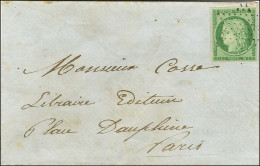 Monsieur Cosse
Libraire Editeur
6 place Dauphine
Paris